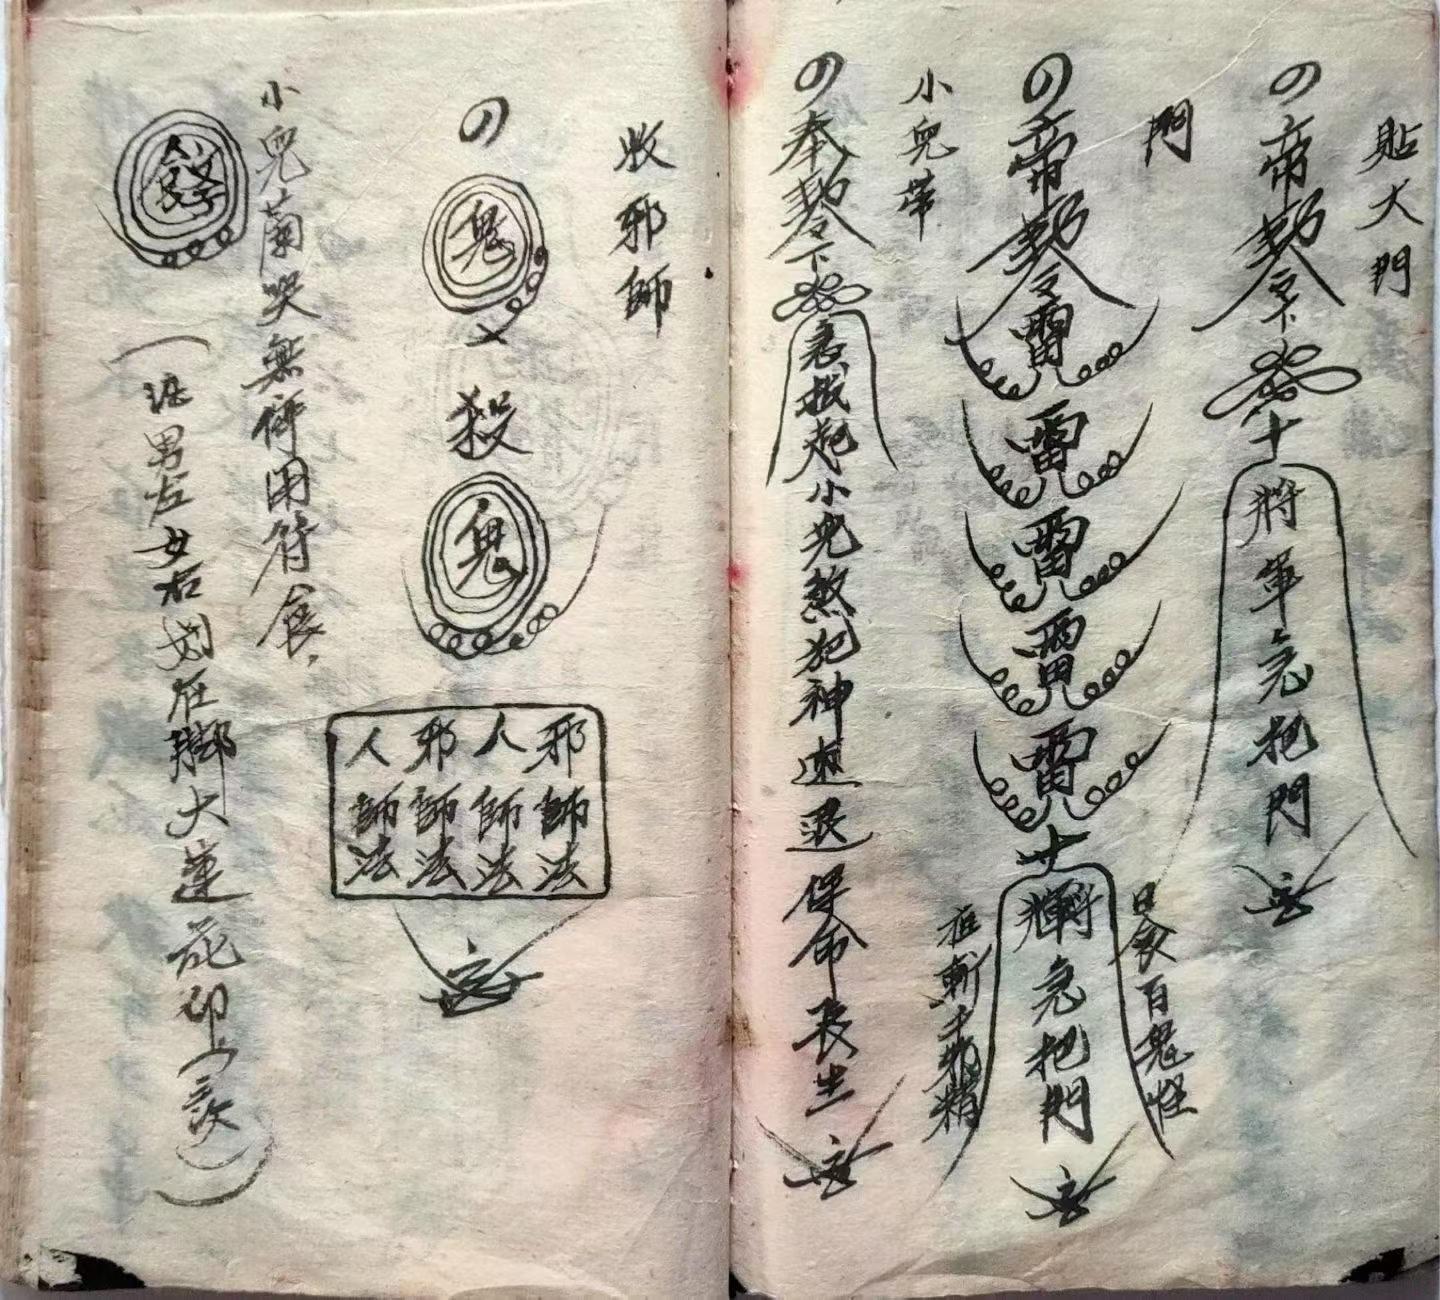 貼大門
帝勅令下
十
將軍急把門
門
帝勅令雷
雷
雷
雷
雷
急把門
日食百鬼怪
斬千邪精
小兒帶
奉勅令下
急救起小兒煞犯神速退保命長生
收邪師
鬼
殺
鬼
邪師法
人師法
邪師法
人師法
小兒 哭無停用符食
(注男左女右划在脚大蓮花印一次)